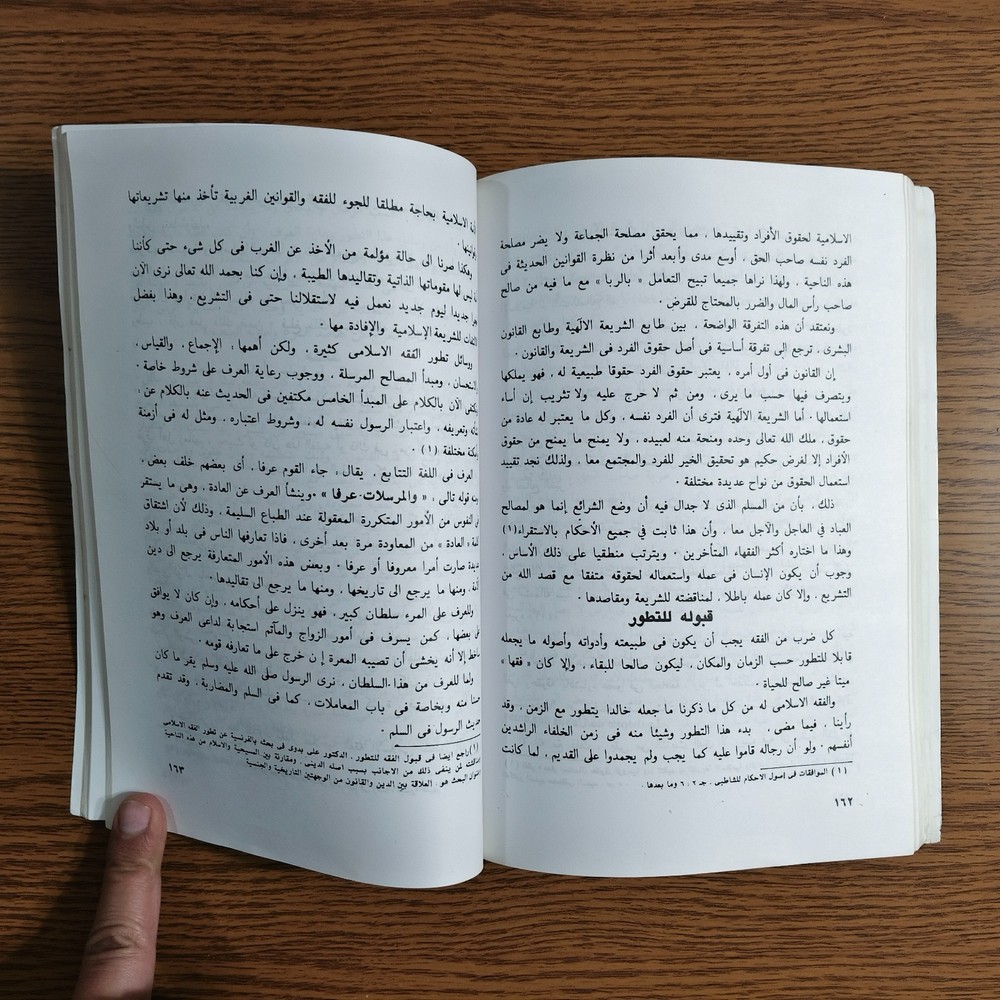 الاسلامية لحقوق الأفراد وتقييدها ، مما يحقق مصلحة الجماعة ولا يضر مصلحة
الفرد نفسه صاحب الحق ، أوسع مدى وأبعد أثرا من نظرة القوانين الحديثة فى
هذه الناحية ، ولهذا نراها جميعا تبيح التعامل « بالربا » مع ما فيه من صالح
صاحب رأس المال والضرر بالمحتاج للقرض ٠
ونعتقد أن هذه التفرقة الواضحة ، بين طابع الشريعة الالٓهية وطابع القانون
البشرى ، ترجع إلى تفرقة أساسية فى أصل حقوق الفرد فى الشريعة والقانون ٠
إن القانون فى أول أمره ، يعتبر حقوق الفرد حقوقا طبيعية له ، فهو يملكها
ويتصرف فيها حسب ما يرى ، ومن ثم لا حرج عليه ولا تثريب إن أساء
استعمالها ٠ أما الشريعة الالٓهية فترى أن الفرد نفسه ، وكل ما يعتبر له عادة من
حقوق ، ملك الله تعالى وحده ومنحة منه لعبيده ، ولا يمنح ما يمنح من حقوق
الأفراد إلا لغرض حكيم هو تحقيق الخير للفرد والمجتمع معا ، ولذلك نجد تقييد
استعمال الحقوق من نواح عديدة مختلفة ٠
ذلك ، بأن من المسلم الذى لا جدال فيه أن وضع الشرائع إنما هو لمصالح
العباد في العاجل والآجل معا ، وأن هذا ثابت في جميع الأحكام بالاستقراء(١)
وهذا ما اختاره أكثر الفقهاء المتأخرين ٠ ويترتب منطقيا على ذلك الأساس ،
وجوب أن يكون الإنسان فى عمله واستعماله لحقوقه متفقا مع قصد الله من
التشريع ، وإلا كان عمله باطلا ، لمناقضته للشريعة ومقاصدها ٠
قبوله للتطور
كل ضرب من الفقه يجب أن يكون فى طبيعته وأدواته وأصوله ما يجعله
قابلا للتطور حسب الزمان والمكان ، ليكون صالحا للبقاء ، وإلا كان « فقها »
ميتا غير صالح للحياة ٠
والفقه الاسلامى له من كل ما ذكرنا ما جعله خالدا يتطور مع الزمن ، وقد
رأينا ، فيما مضى ، بدء هذا التطور وشيئا منه فى زمن الخلفاء الراشدين
أنفسهم ٠ ولو أن رجاله قاموا عليه كما يجب ولم يجمدوا على القديم ، لما كانت
(١) الموافقات فى اصول الاحكام للشاطبى ، جـ ٢ : ٦ وما بعدها ٠
١٦٢
الاسلامية بحاجة مطلقا للجوء للفقه والقوانين الغربية تأخذ منها تشريعاتها
وهكذا صرنا الى حالة مؤلمة من الأخذ عن الغرب فى كل شىء حتى كأننا
ليس لها مقوماتها الذاتية وتقاليدها الطيبة ، وإن كنا بحمد الله تعالى نرى الآن
جديدا ليوم جديد نعمل فيه لاستقلالنا حتى فى التشريع ، وهذا بفضل
للشريعة الإسلامية والإفادة مها ٠
ووسائل تطور الفقه الاسلامى كثيرة ، ولكن أهمها ، الإجماع ، والقياس ،
ومبدأ المصالح المرسلة ، ووجوب رعاية العرف على شروط خاصة ٠
الآن بالكلام على المبدأ الخامس مكتفين فى الحديث عنه بالكلام عن ،
وتعريفه ، واعتبار الرسول نفسه له ، وشروط اعتباره ، ومثل له فى أزمنة
مختلفة (١) ٠
العرف فى اللغة التتابع ، يقال ، جاء القوم عرفا ، أى بعضهم خلف بعض ،
قوله تالى ، « والمرسلات عرفا » ٠وينشأ العرف عن العادة ، وهى ما يستقر
النفوس من الأمور المتكررة المعقولة عند الطباع السليمة ، وذلك لأن اشتقاق
العادة » من المعاودة مرة بعد أخرى ، فاذا تعارفها الناس فى بلد أو بلاد
صارت أمرا معروفا أو عرفا ٠ وبعض هذه الأمور المتعارفة يرجع الى دين
ومنها ما يرجع الى تاريخها ، ومنها ما يرجع الى تقاليدها ٠
وللعرف على المرء سلطان كبير ، فهو ينزل على أحكامه ، وإن كان لا يوافق
بعضها ، كمن يسرف فى أمور الزواج والمآتم استجابة لداعى العرف وهو
إلا أنه يخشى أن تصيبه المعرة إ ن خرج على ما تعارفه قومه ٠
ولما للعرف من هذا السلطان ، نرى الرسول صلى الله عليه وسلم يقر ما كان
منه وبخاصة فى باب المعاملات ، كما فى السلم والمضاربة ، وقد تقدم
حديث الرسول فى السلم ٠
(١)راجع ايضا فى قبول الفقه للتطور ، الدكتور على بدوى فى بحثه بالفرنسية عن تطور الفقه الاسلامى
لمن ينفى ذلك من الاجانب بسبب اصله الدينى ، ومقارنة بين المسيحية والاسلام من هذه الناحية
البحث هو ، العلاقة بين الدين والقانون من الوجهتين التاريخية والجنسية
١٦٣